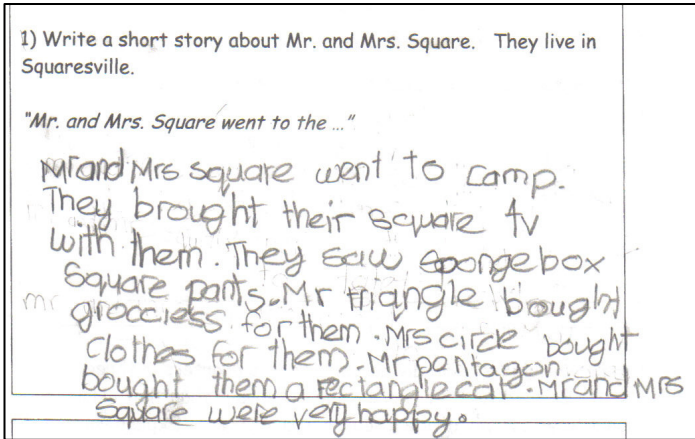 1) Write a short story about Mr. and Mrs. Square. They live in
Squaresville.
"Mr. and Mrs. Square went to the ..."
Mr and Mrs square went to camp.
They brought their square tv
with them. They saw spongebox
Square pants. Mr triangle bought
mr grocciess for them. Mrs circle bought
clothes for them. Mr pentagon
bought them a rectangle cat. Mr and Mrs
Square were very happy.